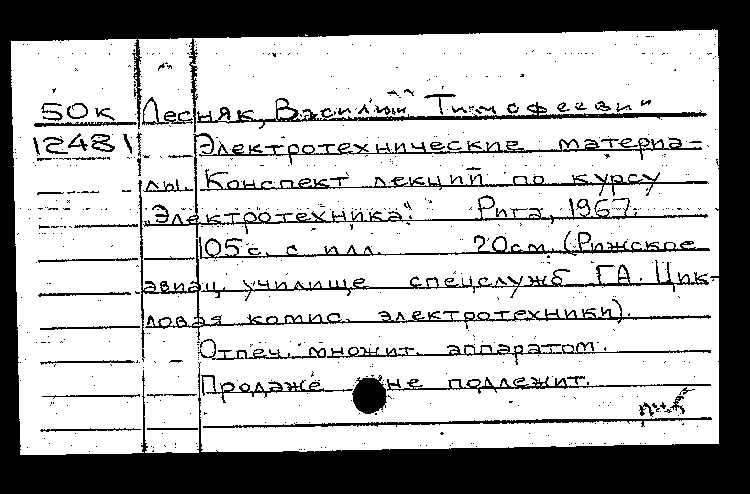 50к Лесняк, Василий Тимофеевич
12481 Электротехнические материа-
лы. Конспект лекций по курсу
"Электротехника". Рига, 1967.
105 с. с илл. 20 см. (Рижское
авиац. училище спецслужб ГА. Цик-
ловая комис. электротехники).
Отпеч. множит. аппаратом.
Продаже не подлежит.